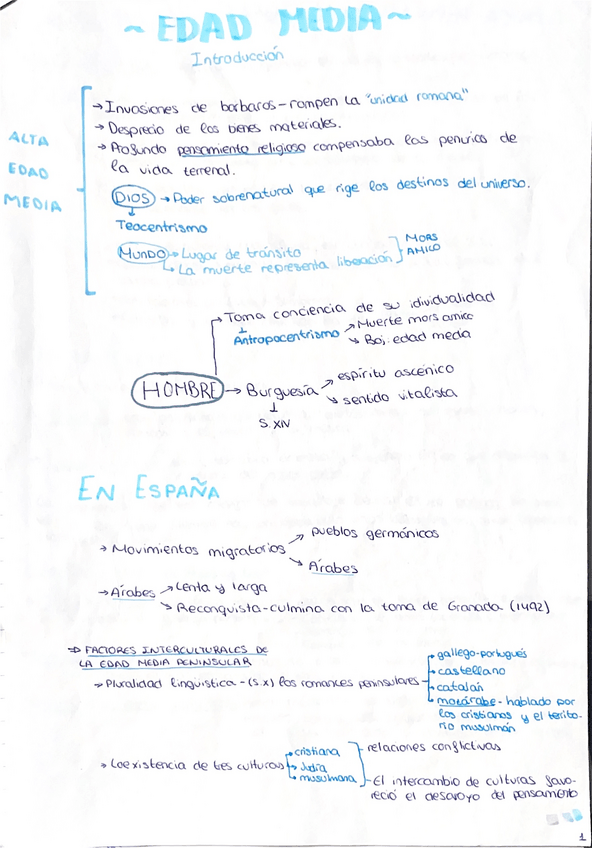 ~ EDAD MEDIA ~
Introducción
ALTA
EDAD
MEDIA
→ Invasiones de barbaros - rompen la "unidad romana"
→ Desprecio de los bienes materiales.
→ Profundo pensamiento religioso compensaba las penurias de
la vida terrenal.
DIOS → Poder sobrenatural que rige los destinos del universo.
Teocentrismo
MUNDO → Lugar de tránsito
→ La muerte representa liberación
MORS
AMICO
→ Toma conciencia de su idividualidad
Antropocentrismo → Muerte mors amico
→ Baj. edad media
HOMBRE → Burguesía → espíritu ascénico
→ sentido vitalista
S. XIV
EN ESPAÑA
→ Movimientos migratorios → pueblos germánicos
→ Árabes
→ Árabes → Lenta y larga
→ Reconquista - culmina con la toma de Granada (1492)
⇒ FACTORES INTERCULTURALES DE
LA EDAD MEDIA PENINSULAR
→ Pluralidad linguistica - (s.x) los romances peninsulares
→ gallego-portugués
→ castellano
→ catalán
→ mozárabe - hablado por
los cristianos y el territo-
rio musulmán
→ Coexistencia de tres culturas
→ cristiana
→ Judía
→ musulmana
relaciones conflictivas
El intercambio de culturas favo-
reció el desarroyo del pensamento
1